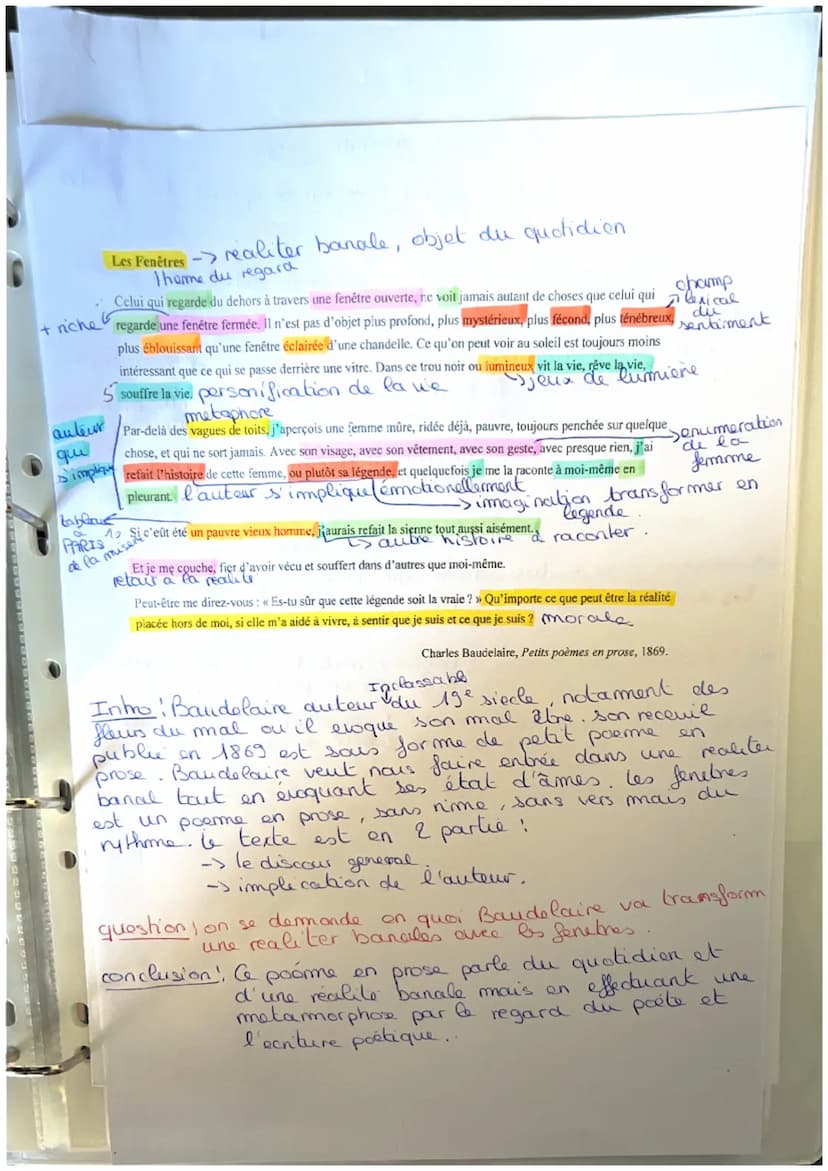 Les Fenêtres -> réaliter banale, objet du quotidien
Theme du regard
Celui qui regarde du dehors à travers une fenêtre ouverte, ne voit jamais autant de choses que celui qui
champ lexical du sentiment
+ riche
regarde une fenêtre fermée. Il n'est pas d'objet plus profond, plus mystérieux, plus fécond, plus ténébreux,
plus éblouissant qu'une fenêtre éclairée d'une chandelle. Ce qu'on peut voir au soleil est toujours moins
intéressant que ce qui se passe derrière une vitre. Dans ce trou noir ou lumineux vit la vie, rêve la vie,
-> jeux de lumière
5 souffre la vie. personification de la vie
metaphore
auteur qui s'implique
Par-delà des vagues de toits, j'aperçois une femme mûre, ridée déjà, pauvre, toujours penchée sur quelque
-> enumeration de la femme
chose, et qui ne sort jamais. Avec son visage, avec son vêtement, avec son geste, avec presque rien, j'ai
refait l'histoire de cette femme, ou plutôt sa légende, et quelquefois je me la raconte à moi-même en
pleurant. l'auteur s'implique émotionellement
-> imagination transformer en legende
tableau
PARIS
de la misère
10 Si c'eût été un pauvre vieux homme, j'aurais refait la sienne tout aussi aisément.
-> autre histoire à raconter.
Et je me couche, fier d'avoir vécu et souffert dans d'autres que moi-même.
retour a la réalité
Peut-être me direz-vous : « Es-tu sûr que cette légende soit la vraie ? » Qu'importe ce que peut être la réalité
placée hors de moi, si elle m'a aidé à vivre, à sentir que je suis et ce que je suis ? morale
Charles Baudelaire, Petits poèmes en prose, 1869.
Inclassable
Intro : Baudelaire auteur du 19e siecle, notament des
fleurs du mal ou il evoque son mal être. Son receuil
publié en 1869 est sous forme de petit poeme en
prose. Baudelaire veut nous faire entrée dans une realiter
banal tout en évoquant ses état d'âmes. Les fenetres
est un poeme en prose, sans rime, sans vers mais du
rythme. Le texte est en 2 partie :
-> le discour general.
-> implication de l'auteur.
question : on se demande en quoi Baudelaire va transform
une realiter banales avec les fenetres.
conclusion : Ce poéme en prose parle du quotidien et
d'une réalité banale mais en effectuant une
metamorphose par le regard du poéte et
l'ecriture poétique.